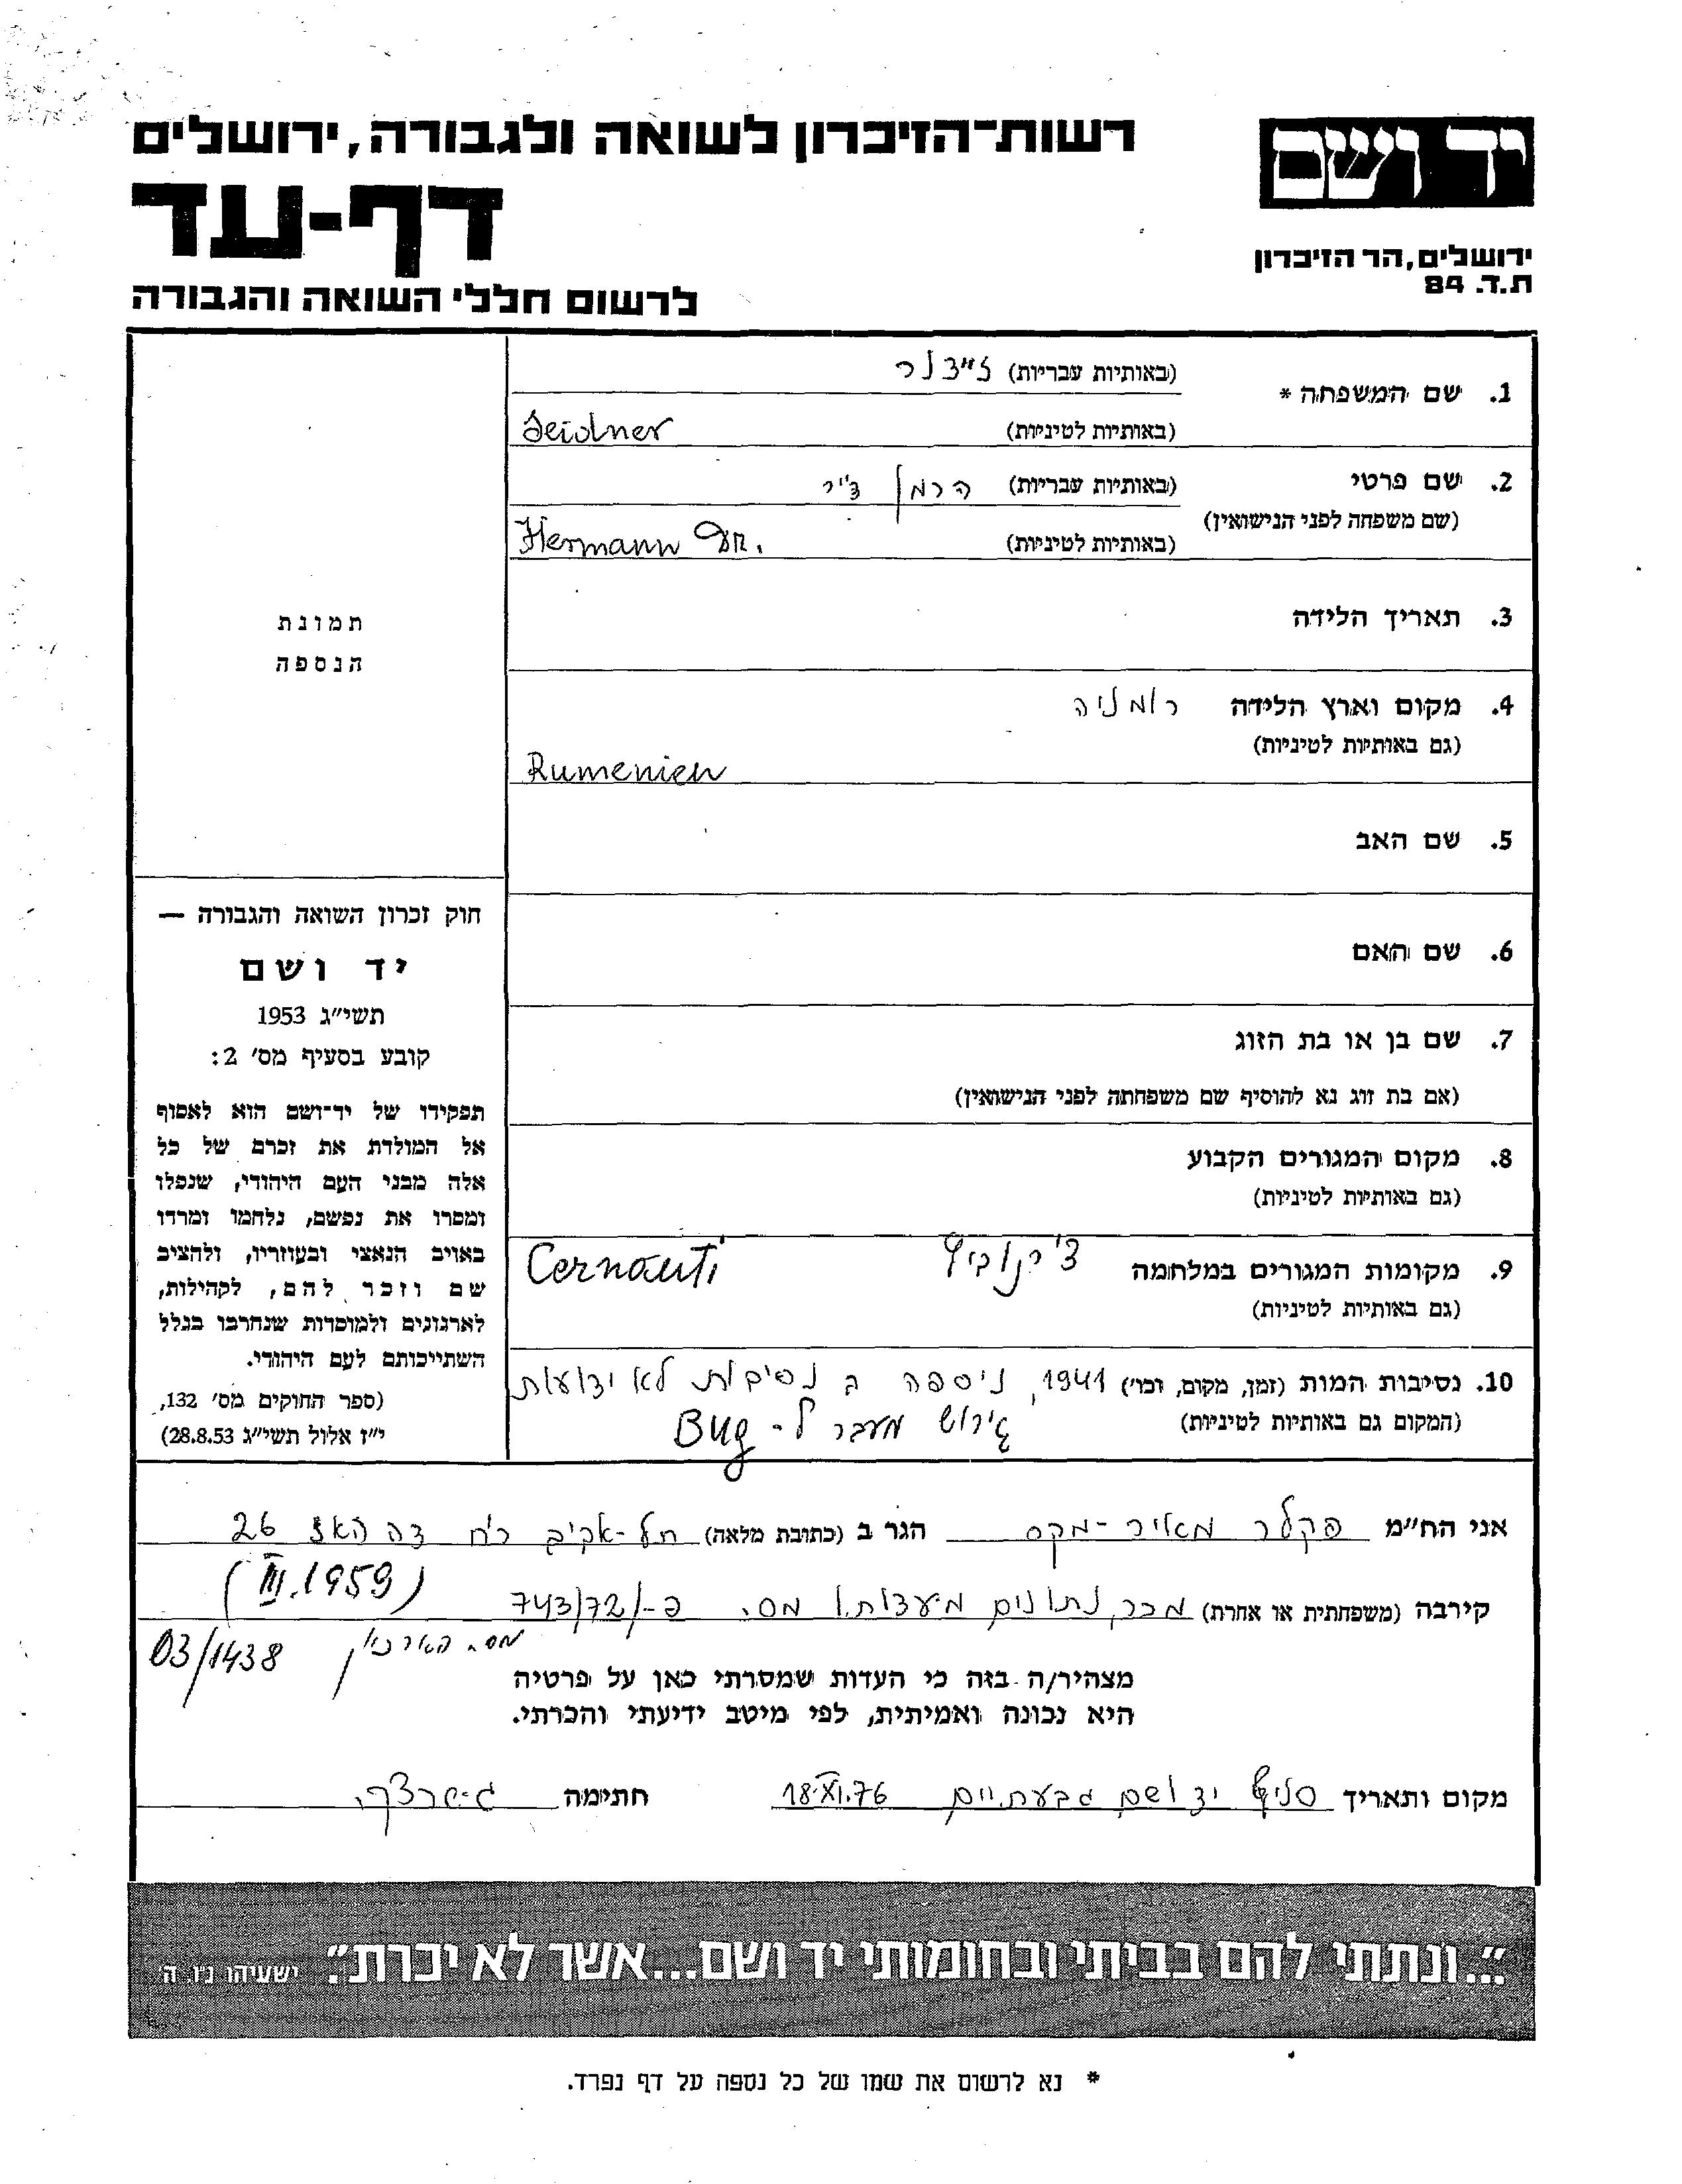 יד ושם
ירושלים, הר הזיכרון
ת.ד. 84
רשות-הזיכרון לשואה ולגבורה, ירושלים
דף-עד
לרשום חללי השואה והגבורה
1. שם המשפחה *
(באותיות עבריות) זיידנר
(באותיות לטיניות) Seidner
2. שם פרטי
(שם משפחה לפני הנישואין)
(באותיות עבריות) הרמן ד"ר
(באותיות לטיניות) Hermann Dr.
3. תאריך הלידה
4. מקום וארץ הלידה רומניה
(גם באותיות לטיניות)
Rumenien
5. שם האב
6. שם האם
7. שם בן או בת הזוג
(אם בת זוג נא להוסיף שם משפחתה לפני הנישואין)
8. מקום המגורים הקבוע
(גם באותיות לטיניות)
9. מקומות המגורים במלחמה צ'רנוביץ Cernauti
(גם באותיות לטיניות)
10. נסיבות המות (זמן, מקום, וכו') 1941, ניספה ב נסיבות לא ידועות
(המקום גם באותיות לטיניות) גירוש מעבר ל-Bug
תמונת
הנספה
חוק זכרון השואה והגבורה —
יד ושם
תשי"ג 1953
קובע בסעיף מס' 2:
תפקידו של יד-ושם הוא לאסוף
אל המולדת את זכרם של כל
אלה מבני העם היהודי, שנפלו
ומסרו את נפשם, נלחמו ומרדו
באויב הנאצי ובעוזריו, ולהציב
שם וזכר להם, לקהילות,
לארגונים ולמוסדות שנחרבו בגלל
השתייכותם לעם היהודי.
(ספר החוקים מס' 132,
י"ז אלול תשי"ג 28.8.53)
אני הח"מ פקלר מאיר-מקס הגר ב (כתובת מלאה) תל-אביב רח דה האז 26
קירבה (משפחתית או אחרת) מכר, נתונים מיעדותו מס. פ-/743/72 (III.1959)
מס. הארכיון 03/1438
מצהיר/ה בזה כי העדות שמסרתי כאן על פרטיה
היא נכונה ואמיתית, לפי מיטב ידיעתי והכרתי.
מקום ותאריך סניף יד ושם גבעתיים 18.XI.76 חתימה
"...ונתתי להם בביתי ובחומותי יד ושם...אשר לא יכרת". ישעיהו נ"ו ה'
* נא לרשום את שמו של כל נספה על דף נפרד.